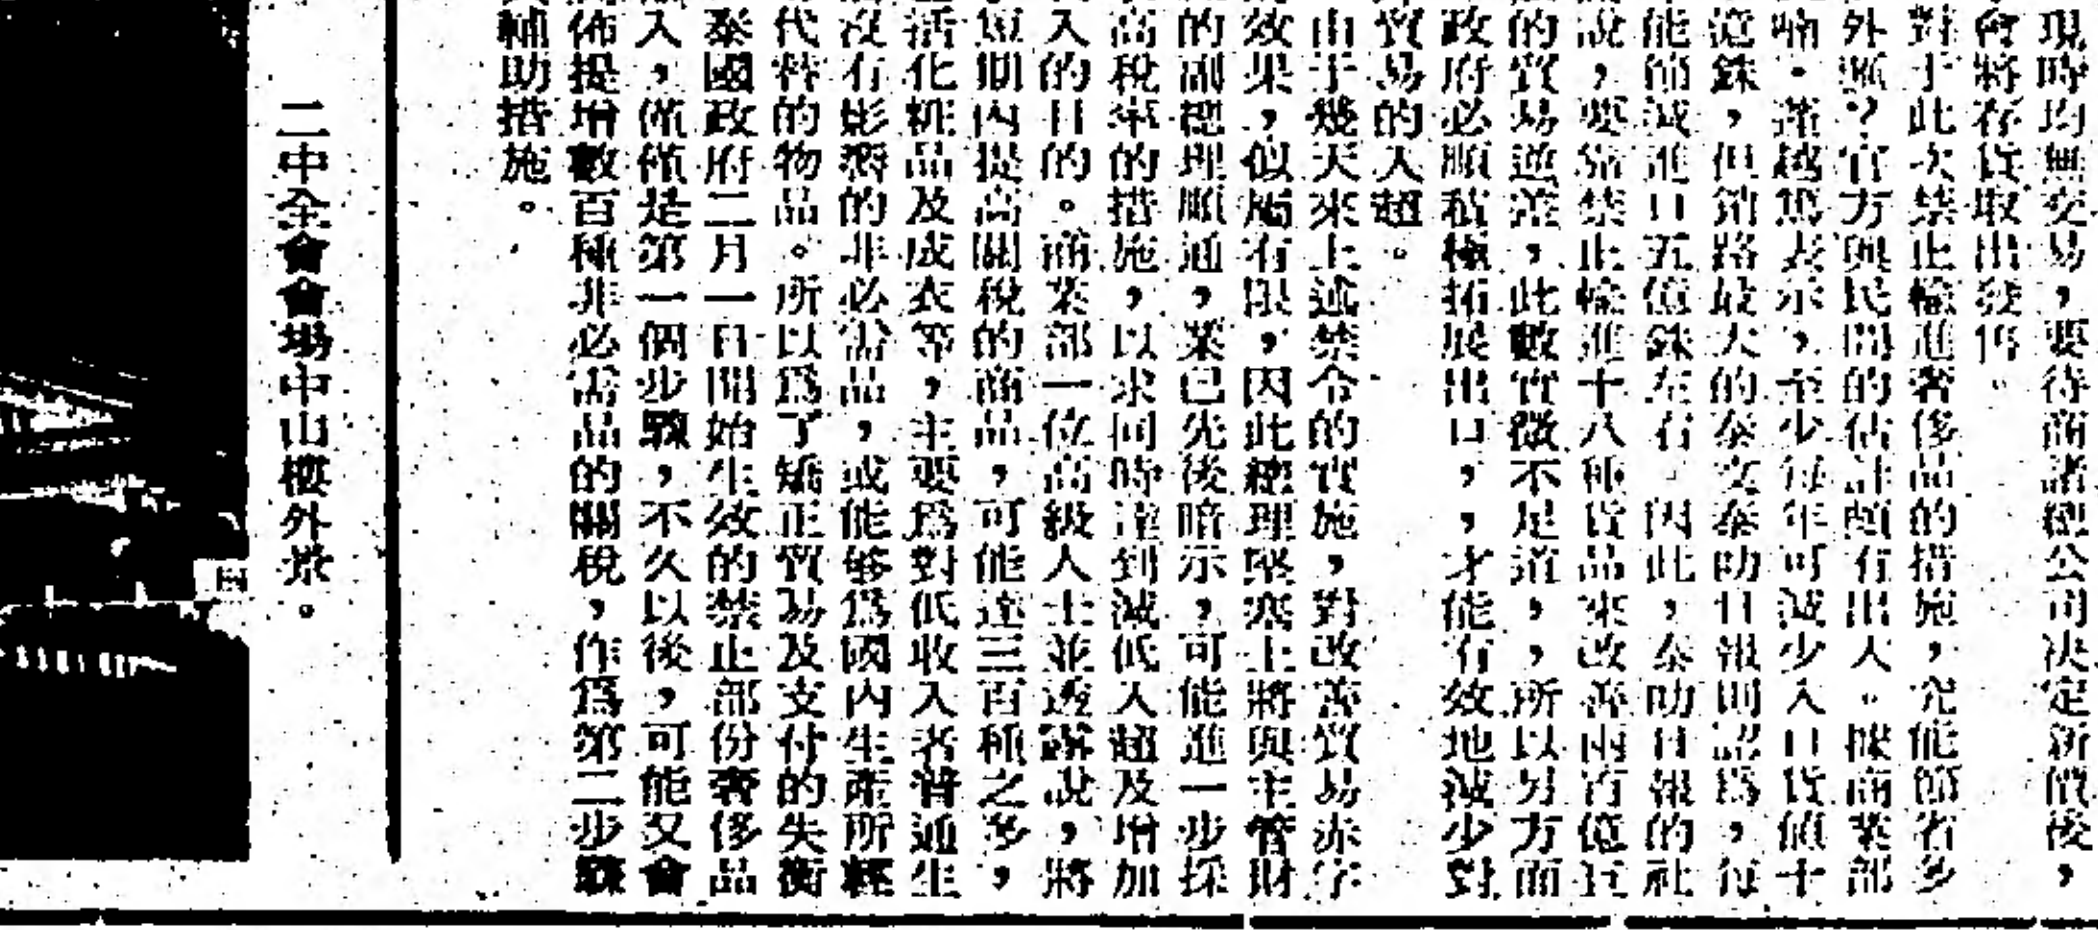 現時均無交易，要待商諸總公司決定新價後，
會將存貨取出發售。
對于此次禁止輸進奢侈品的措施，究能節省多
外匯？官方與民間的估計頗有出入。據商業部
喃·蓬越篤表示，至少每年可減少入口貨値十
億銖，但銷路最大的泰文泰叻日報則認爲，每
能節減進口五億銖左右。因此，泰叻日報的社
說，要靠禁止輸進十八種貨品來改善兩百億銖
的貿易逆差，此數實微不足道，，所以另方面
政府必順積極拓展出口，，才能有效地減少對
貿易的入超。
由于幾天來上述禁令的實施，對改善貿易赤字
效果，似屬有限，因此總理堅塞上將與主管財
的副總理順通，業已先後暗示，可能進一步採
高稅率的措施，以求同時達到減低入超及增加
入的目的。商業部一位高級人士並透露說，將
短期內提高關稅的商品，可能達三百種之多，
括化粧品及成衣等，主要爲對低收入者普通生
沒有影響的非必需品，或能够爲國內生產所經
代替的物品。所以爲了矯正貿易及支付的失衡
泰國政府二月一日開始生效的禁止部份奢侈品
入，僅僅是第一個步驟，不久以後，可能又會
佈提增數百種非必需品的關稅，作爲第二步驟
輔助措施。
二中全會會場中山樓外景。